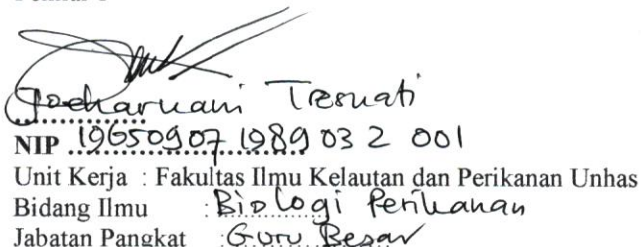 Joeharnani Tresnati
NIP 19650907 1989 03 2 001
Unit Kerja : Fakultas Ilmu Kelautan dan Perikanan Unhas
Bidang Ilmu : Biologi Perikanan
Jabatan Pangkat : Guru Besar